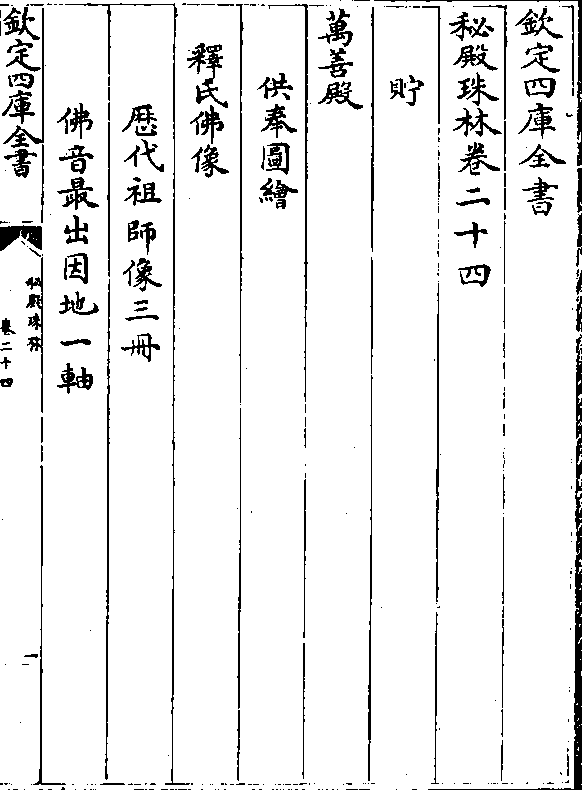 欽定四庫全書
秘殿珠林卷二十四
貯
萬善殿
供奉圖繪
釋氏佛像
歴代祖師像三冊
佛音最出因地一軸
欽定四庫全書
秘殿珠林
卷二十四
一